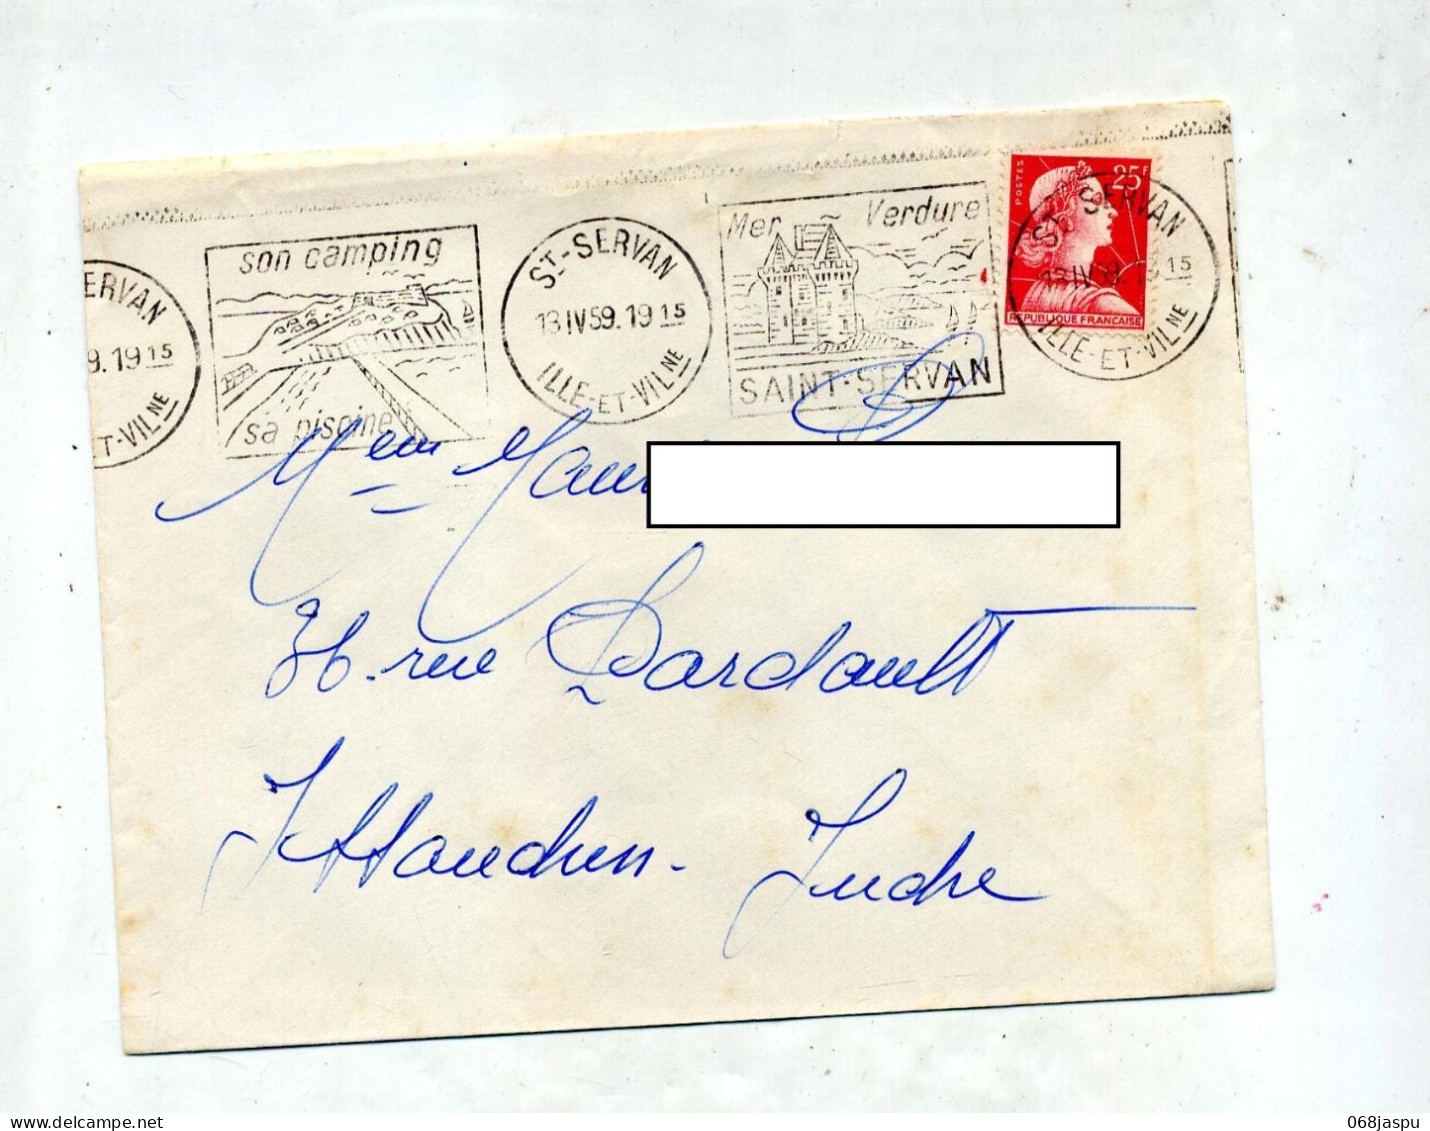 ERVAN
9.19 15
ET-VIL NE
son camping
sa piscine
ST-SERVAN
13 IV 59. 19 15
ILLE-ET-VIL NE
Mer Verdure
SAINT-SERVAN
POSTES
25F
REPUBLIQUE FRANCAISE
ST SERVAN
13 IV 59. 19 15
ILLE-ET-VIL NE
Mem
36. rue Dardault
Issoudun - Indre
068jaspu